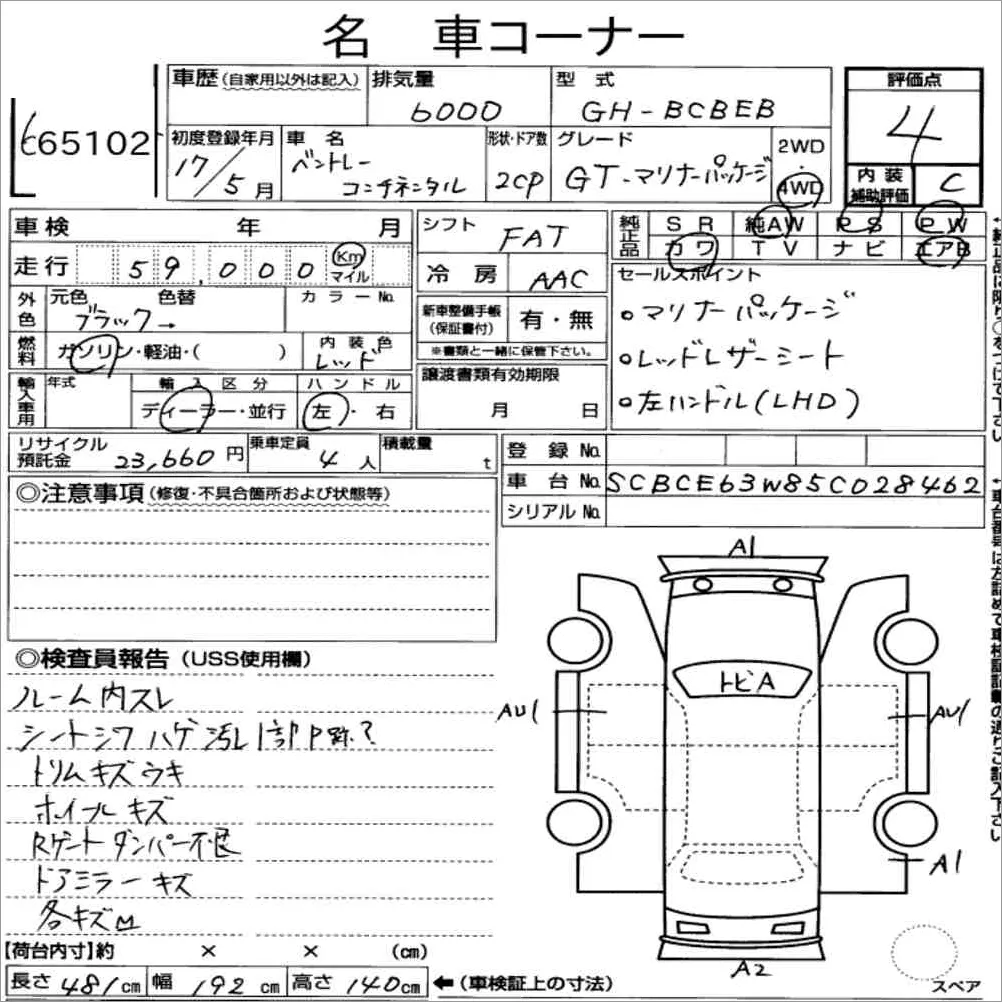 名 車コーナー
車歴(自家用以外は記入) 排気量 型式 評価点
6000 GH-BCBEB 4
665102
初度登録年月 車名 形状・ドア数 グレード 2WD・4WD
17/5月 ベントレー コンチネンタル 2CP GT-マリナーパッケージ
内装補助評価 C
車検 年 月 シフト FAT
純正品 SR 純AW PS PW
カワ TV ナビ エアB
走行 59,000 Km マイル 冷房 AAC
セールスポイント
外色 元色 色替 カラーNo.
ブラック→
新車整備手帳(保証書付) 有・無
※書類と一緒に保管下さい。
○マリナーパッケージ
燃料 ガソリン・軽油・( ) 内装色 レッド
○レッドレザーシート
輸入車用 年式 輸入区分 ハンドル 譲渡書類有効期限
ディーラー・並行 左・右 月 日
○左ハンドル(LHD)
リサイクル預託金 23,660円 乗車定員 4人 積載量 t
登録No.
車台No. SCBCE63W85C028462
シリアルNo.
◎注意事項(修復・不具合箇所および状態等)
↑純正品に限り○をつけて下さい
↑車台番号は左詰めで車検証記載の通りご記入下さい
A1
◎検査員報告(USS使用欄)
ルーム内スレ
トビA
シートシワハゲ汚レ1部P跡?
AU1 AU1
トリムキズウキ
ホイールキズ
Rゲートダンパー不良
ドアミラーキズ
A1
各キズM
【荷台内寸】約 × × (cm)
A2
長さ 481cm 幅 192cm 高さ 140cm ←(車検証上の寸法)
スペア